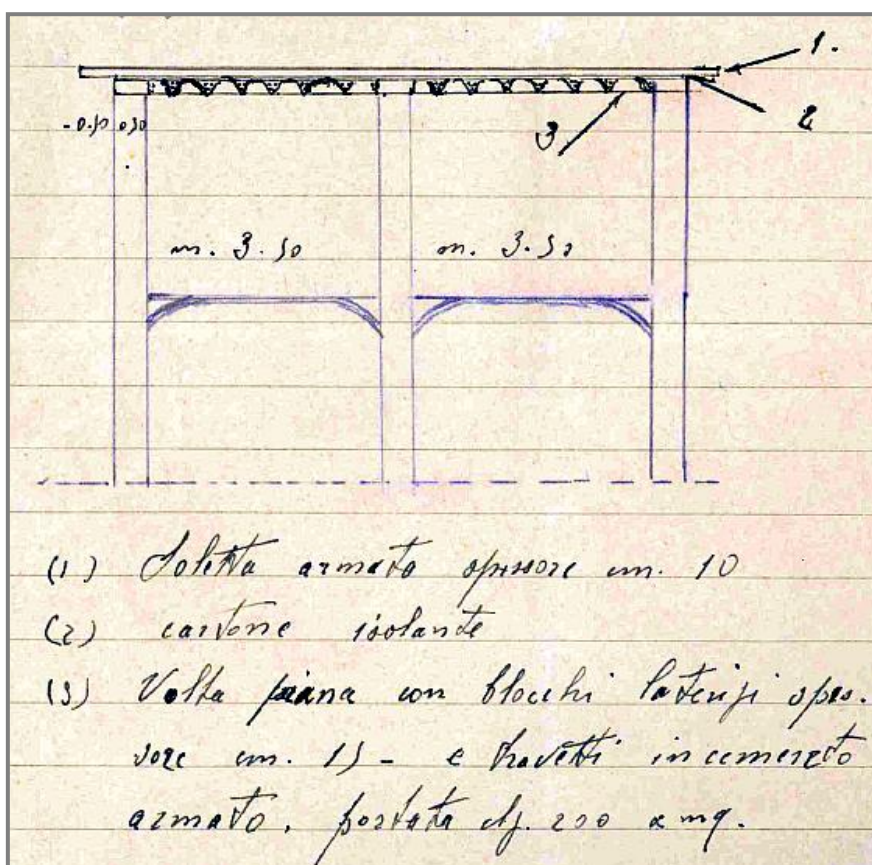 1.
2
3
- 0.50 0.50
m. 3.50 m. 3.50
(1) Soletta armata spessore cm. 10
(2) cartone isolante
(3) Volta piana con blocchi laterizi spes.
sore cm. 15 - e travetti in cemento
armato, portata Kg. 200 a mq.